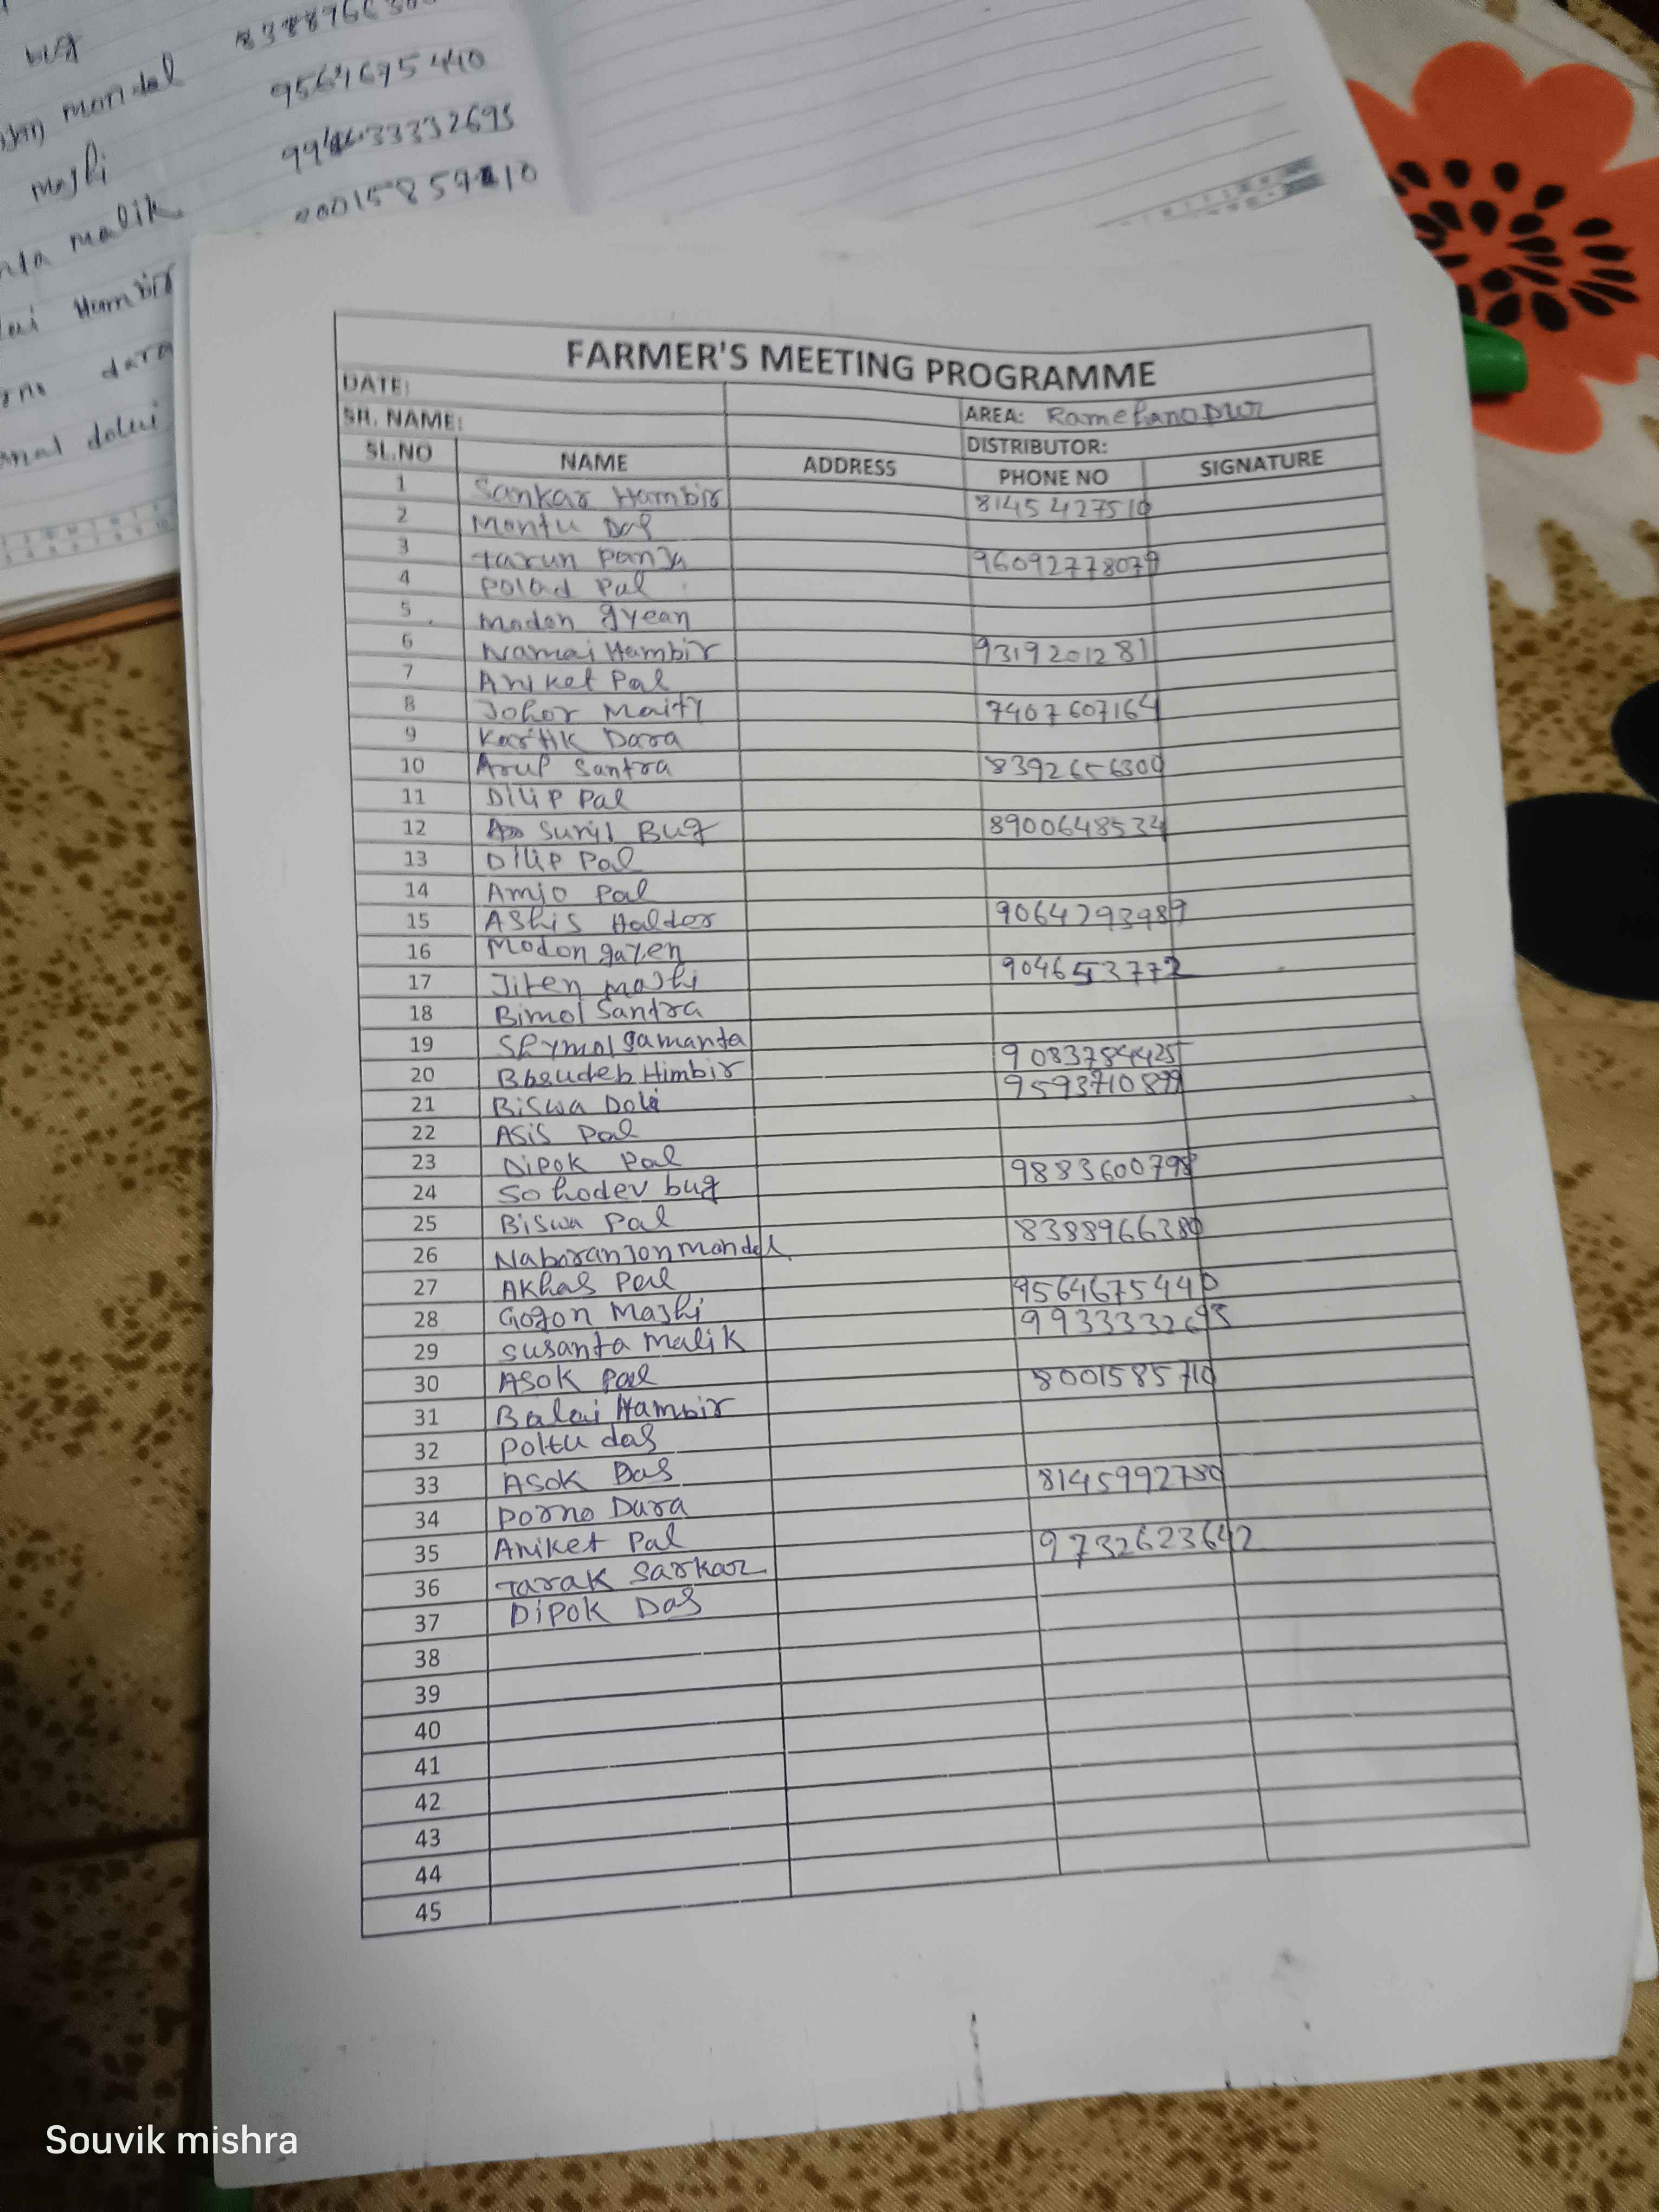 mondal
9564675440
majhi
malik
Humbir
dara
dolui
FARMER'S MEETING PROGRAMME
DATE:
SR. NAME: AREA:
DISTRIBUTOR:
SL.NO NAME ADDRESS PHONE NO SIGNATURE
1 Sankar Hambir 8145427510
2 Montu Das
3 tarun Panja 96092778079
4 Polad Pal
5 madan gyean
6 Namai Hambir 9319201281
7 Aniket Pal
8 Johor Maity 7407607164
9 Kartik Dara
10 Arup Santra 8392656300
11 Dilip Pal
12 Sunil Bug 8900648534
13 Dilip Pal
14 Amjo Pal
15 Ashis Haldor 9064293989
16 Modon gayen
17 Jiten majhi 9046537772
18 Bimol Santra
19 Shymol gamanta 9083784425
20 Bbsudeb Himbir 9593710899
21 Biswa
22 Asis Pal
23 Dipok Pal 9883600798
24 Sohodev bug
25 Biswa Pal 8388966380
26 Nabaranjon mondal
27 Akhas Pal 9564675440
28 Gogon Majhi 9933332695
29 susanta malik
30 Asok Pal 8001585710
31 Balai Hambir
32 poltu das
33 Asok Das 8145992780
34 Porno Dara
35 Aniket Pal 9732623642
36 Tarak Sarkar
37 Dipok Das
38
39
40
41
42
43
44
45
Souvik mishra